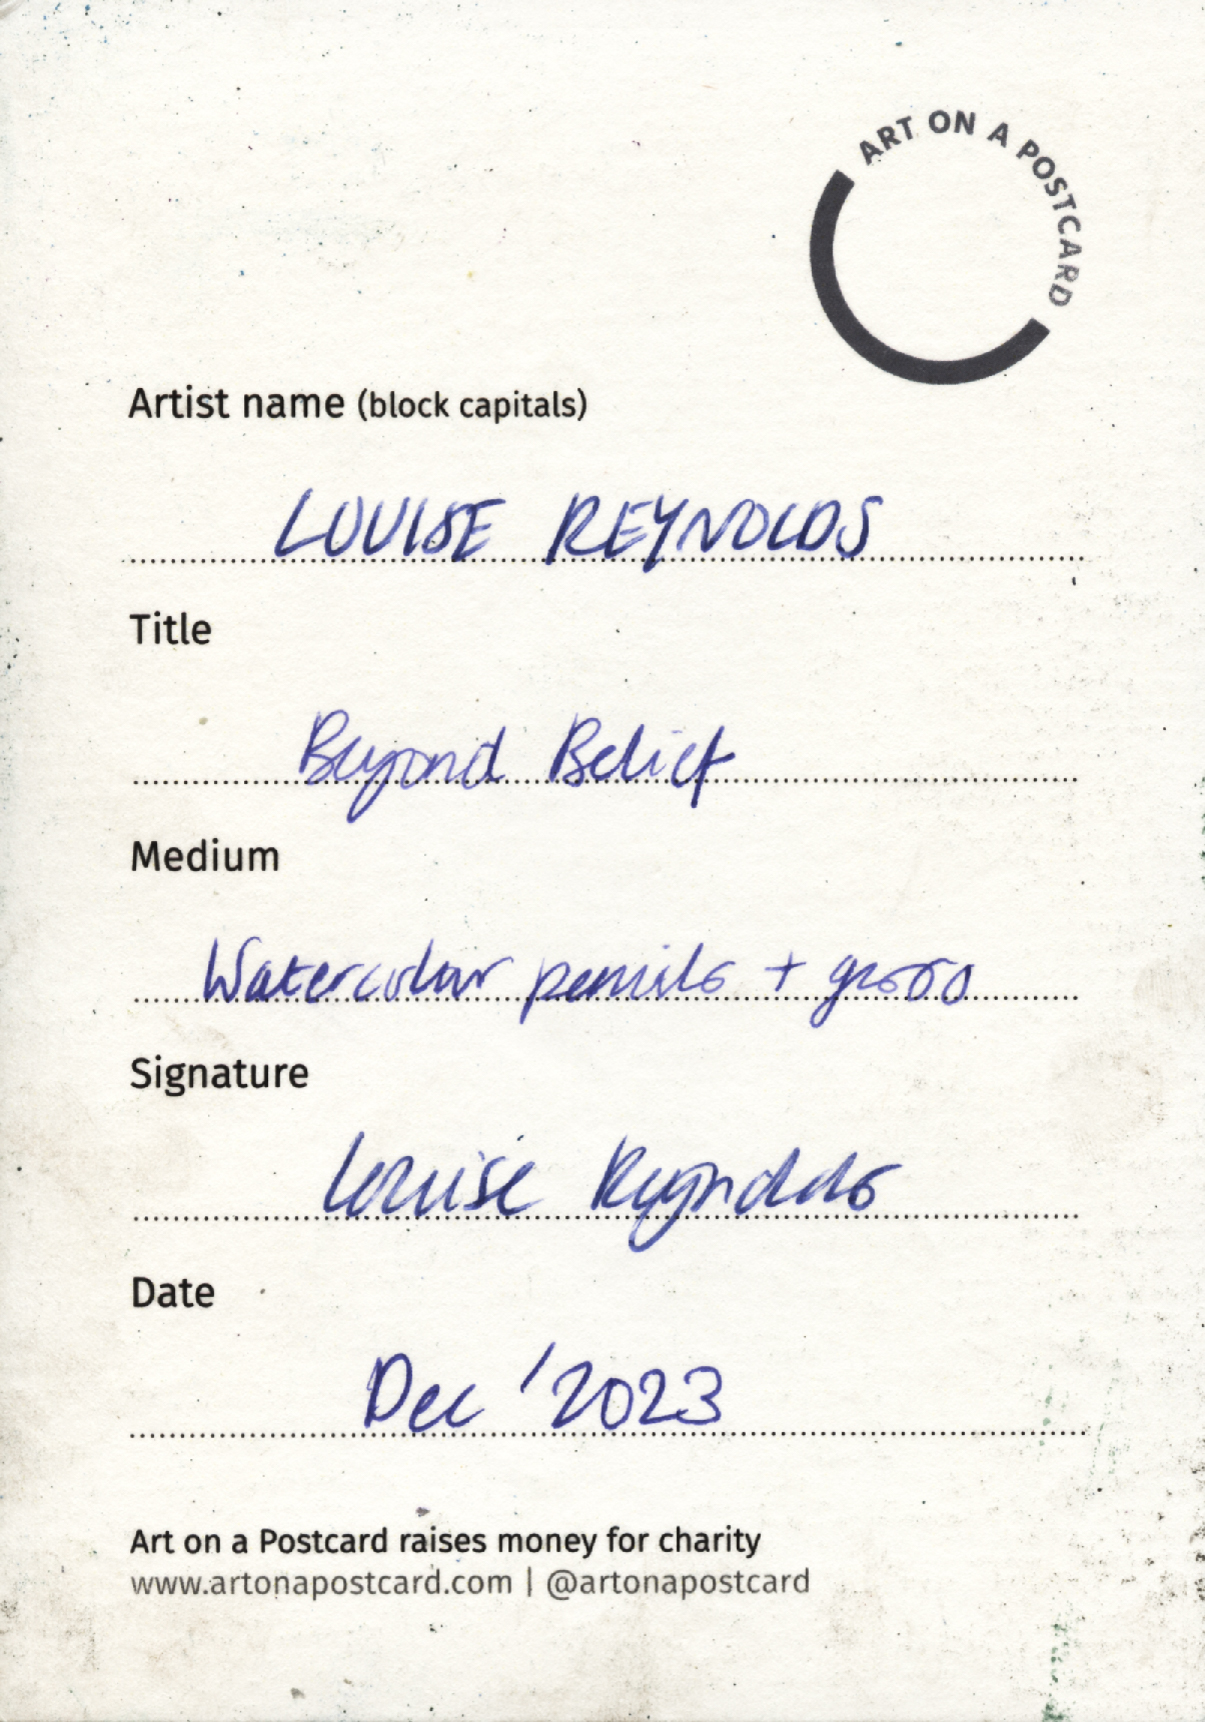 ART ON A POSTCARD
Artist name (block capitals)
LOUISE REYNOLDS
Title
Beyond Belief
Medium
Watercolour pencils + gesso
Signature
Louise Reynolds
Date
Dec '2023
Art on a Postcard raises money for charity
www.artonapostcard.com | @artonapostcard